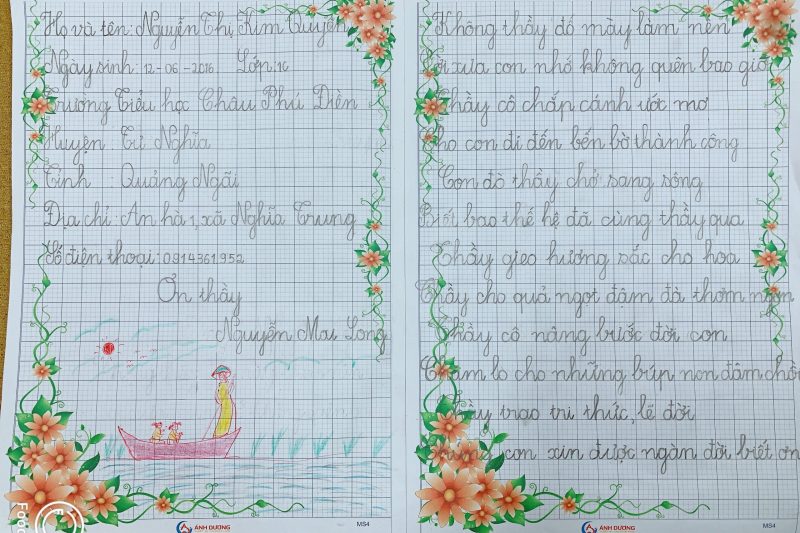 Họ và tên: Nguyễn Thị Kim Quyên
Ngày sinh: 12-06-2016 Lớp: 1C
Trương Tiểu học Châu Phú Điền
Huyện: Tư Nghĩa
Tỉnh : Quảng Ngãi
Địa chỉ: An hà 1, xã Nghĩa Trung
Số điện thoại: 0914361952
Ơn thầy
Nguyễn Mai Long
ÁNH DƯƠNG
MS4
Không thầy đố mày làm nên
Lời xưa con nhớ không quên bao giờ
Thầy cô chắp cánh ước mơ
Cho con đi đến bến bờ thành công
Con đò thầy chở sang sông
Biết bao thế hệ đã cùng thầy qua
Thầy gieo hương sắc cho hoa
Thầy cho quả ngọt đậm đà thơm ngon
Thầy cô nâng bước đời con
Chăm lo cho những búp non đâm chồi
Thầy trao tri thức, lẽ đời
con xin được ngàn đời biết ơn
ÁNH DƯƠNG
MS4